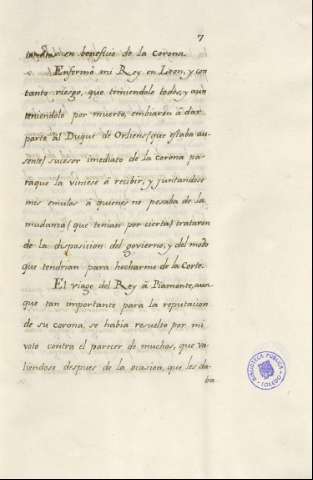 7
en beneficio de la Corona.
Enfermó mi Rey en Leon, y con
tanto riesgo, que teniendole todos, y aun
teniendolo por muerto, embiaron â dar
parte al Duque de Orliens (que estaba au-
sente) sucesor imediato de la corona pa-
raque la viniese â recibir, y juntandose
mis emulos â quienes no pesaba de la
mudanza (que tenian por cierta) trataron
de la disposicion del govierno, y del modo
que tendrian para hecharme de la Corte.
El viage del Rey â Piamonte, aun
que tan importante para la reputacion
de su corona, se habia resuelto por mi
voto contra el parecer de muchos, que va-
liendose despues de la ocasion, que les da-
ba
BIBLIOTECA PUBLICA
TOLEDO